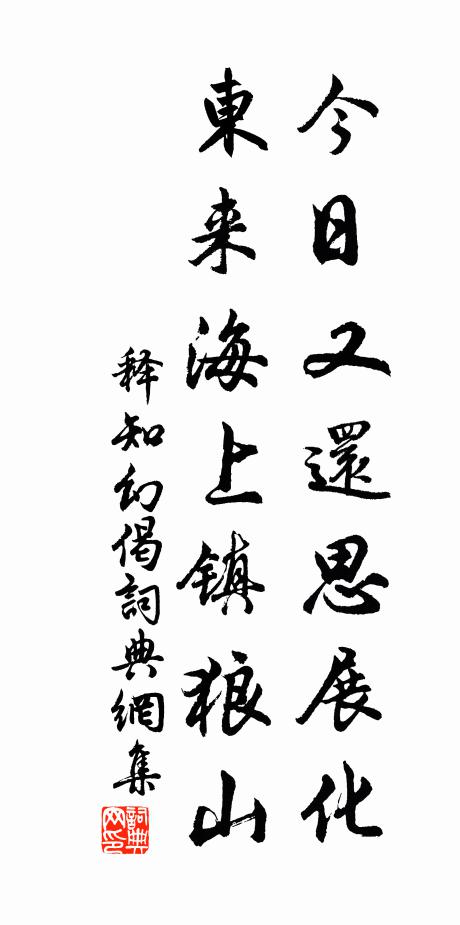 今日又還思展化
東来海上鎮狼山
释知幻偈詞典網集
詞典
网印